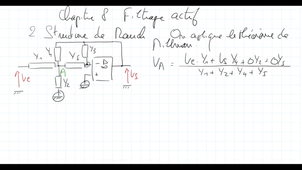 Chapitre 8 Filtrage actif
2 Structure de Rauch
On applique le théorème de
Millman
Y4
Y5
Y1
Y3
A
Y2
Ve
Vs
VA = Ve.Y1 + Vs Y4 + 0Y2 + 0Y3
Y1 + Y2 + Y4 + Y3